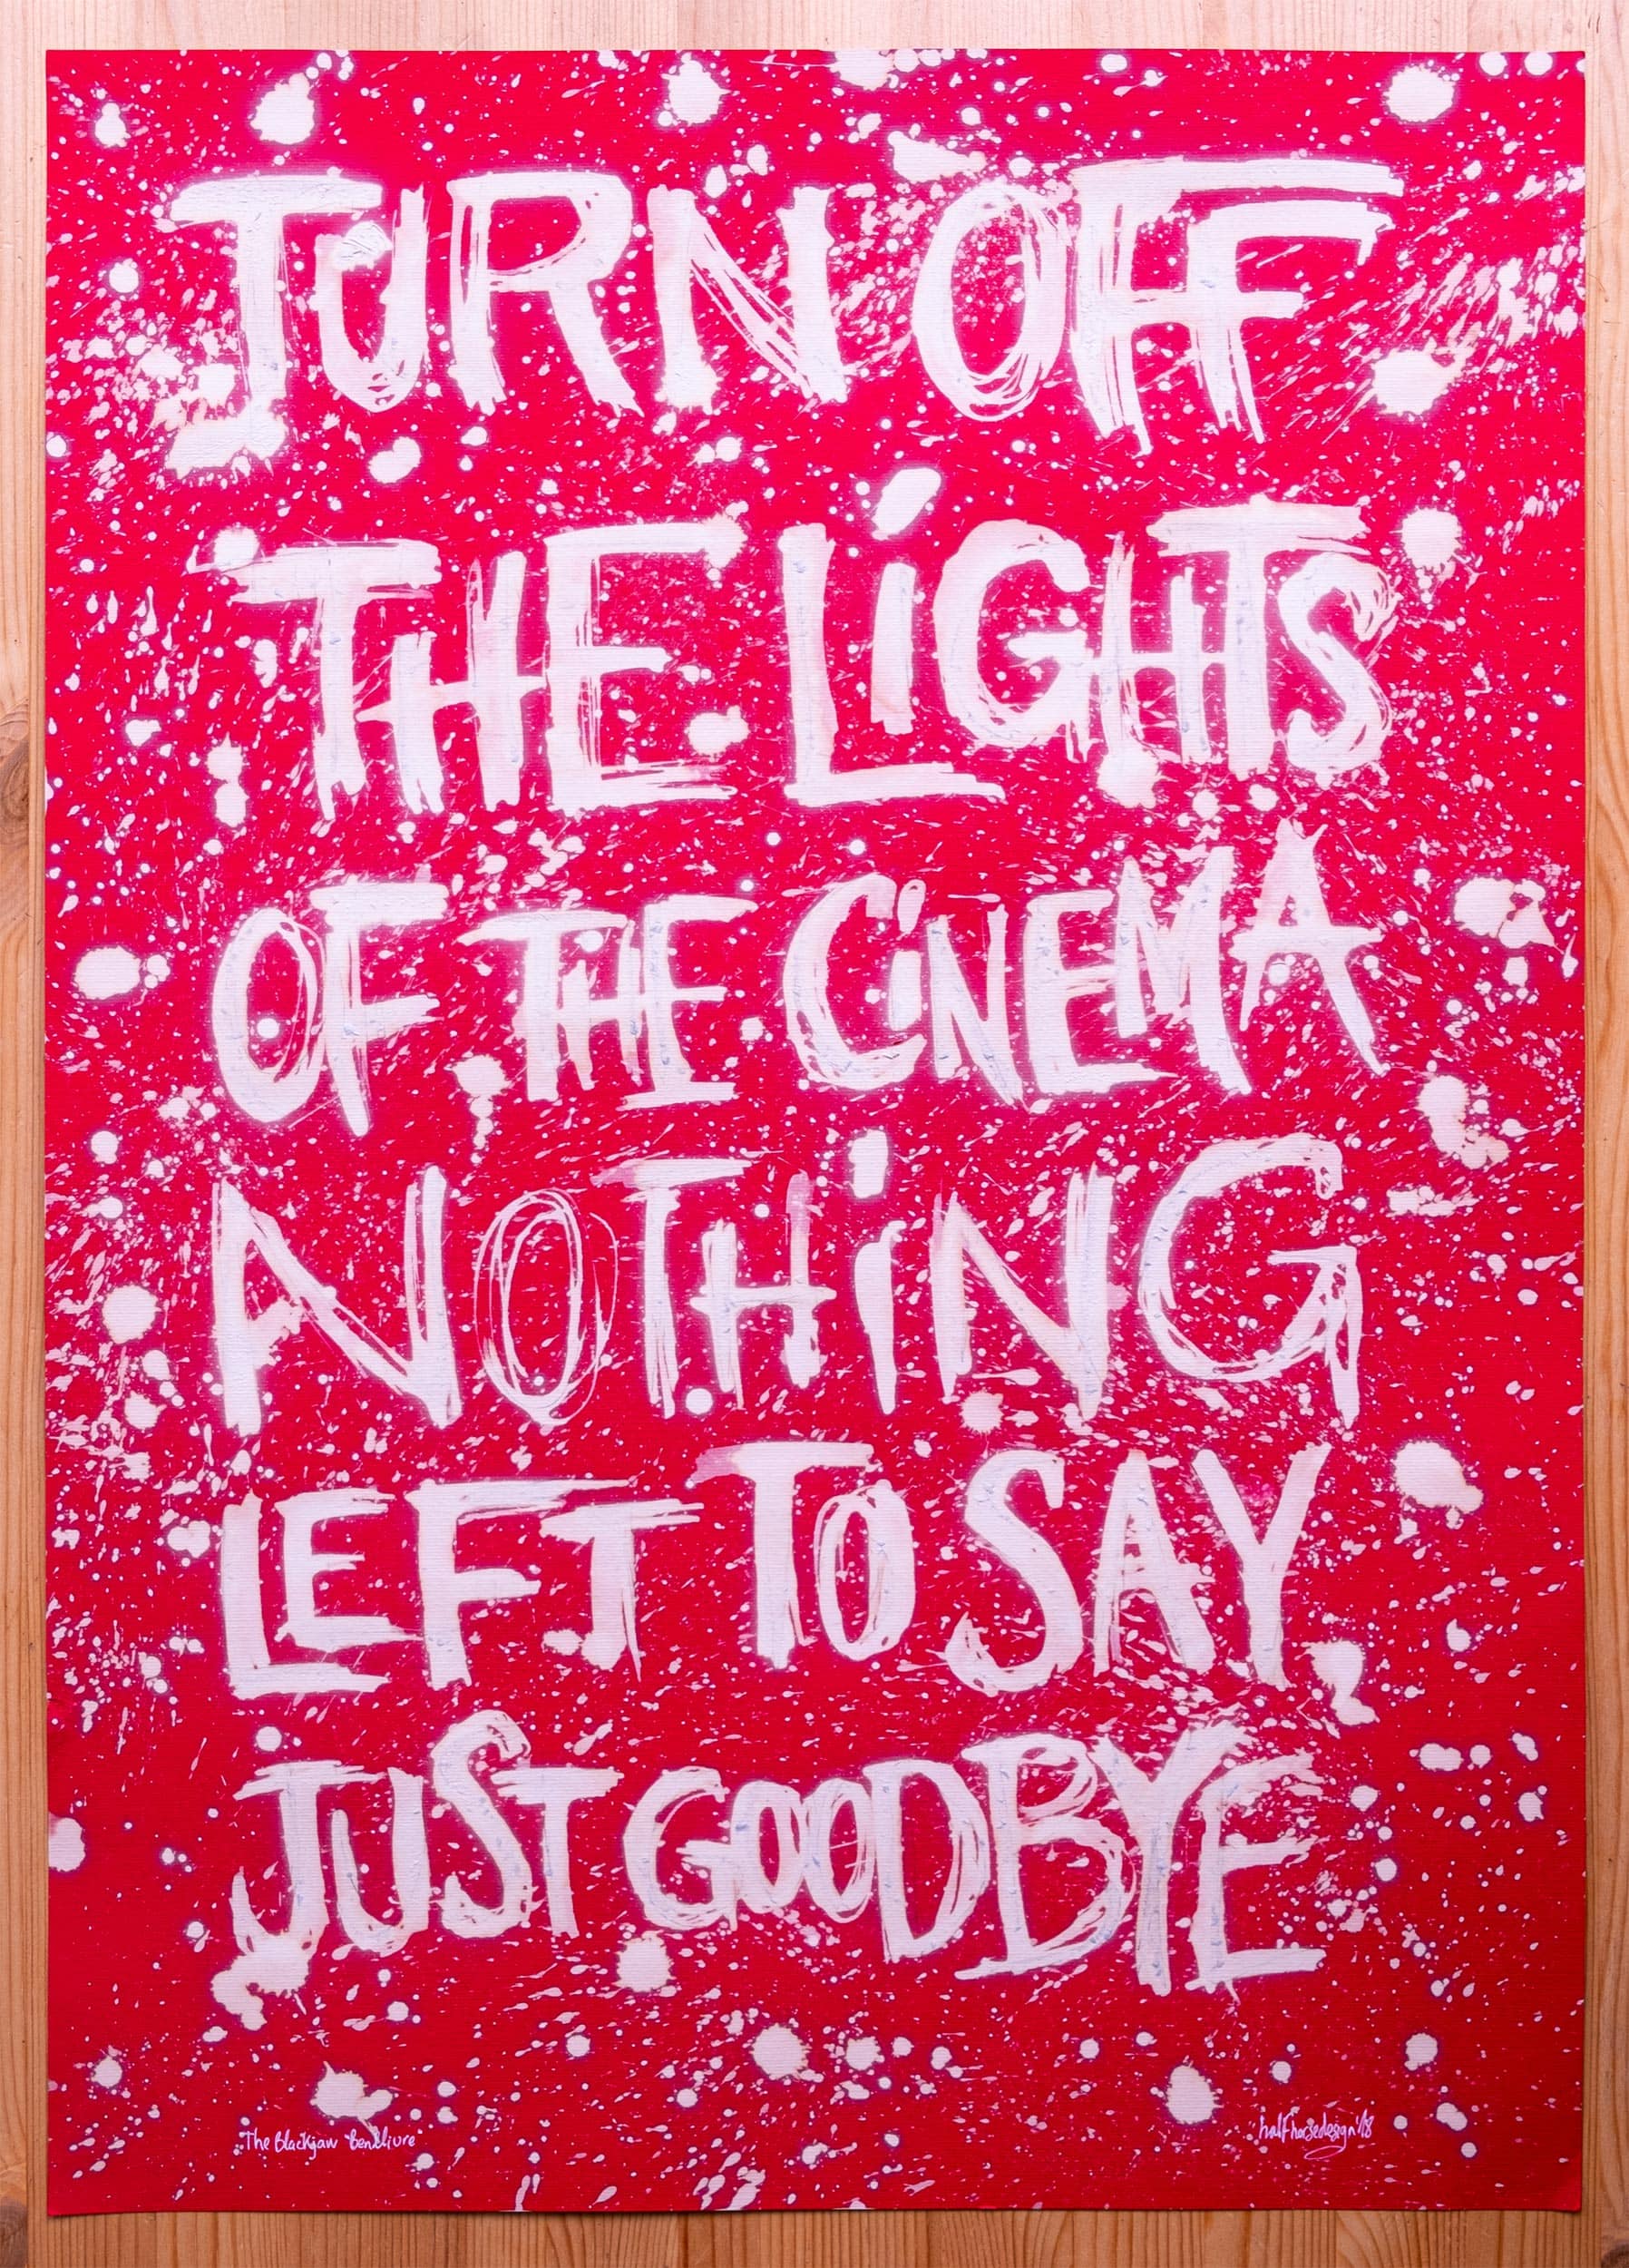 TURN OFF
THE LiGHTS
OF THE CiNEMA
NOTHiNG
LEFT TO SAY,
JUST GOODBYE
The Blackjaw Benelivre
halfhorsedesign '18